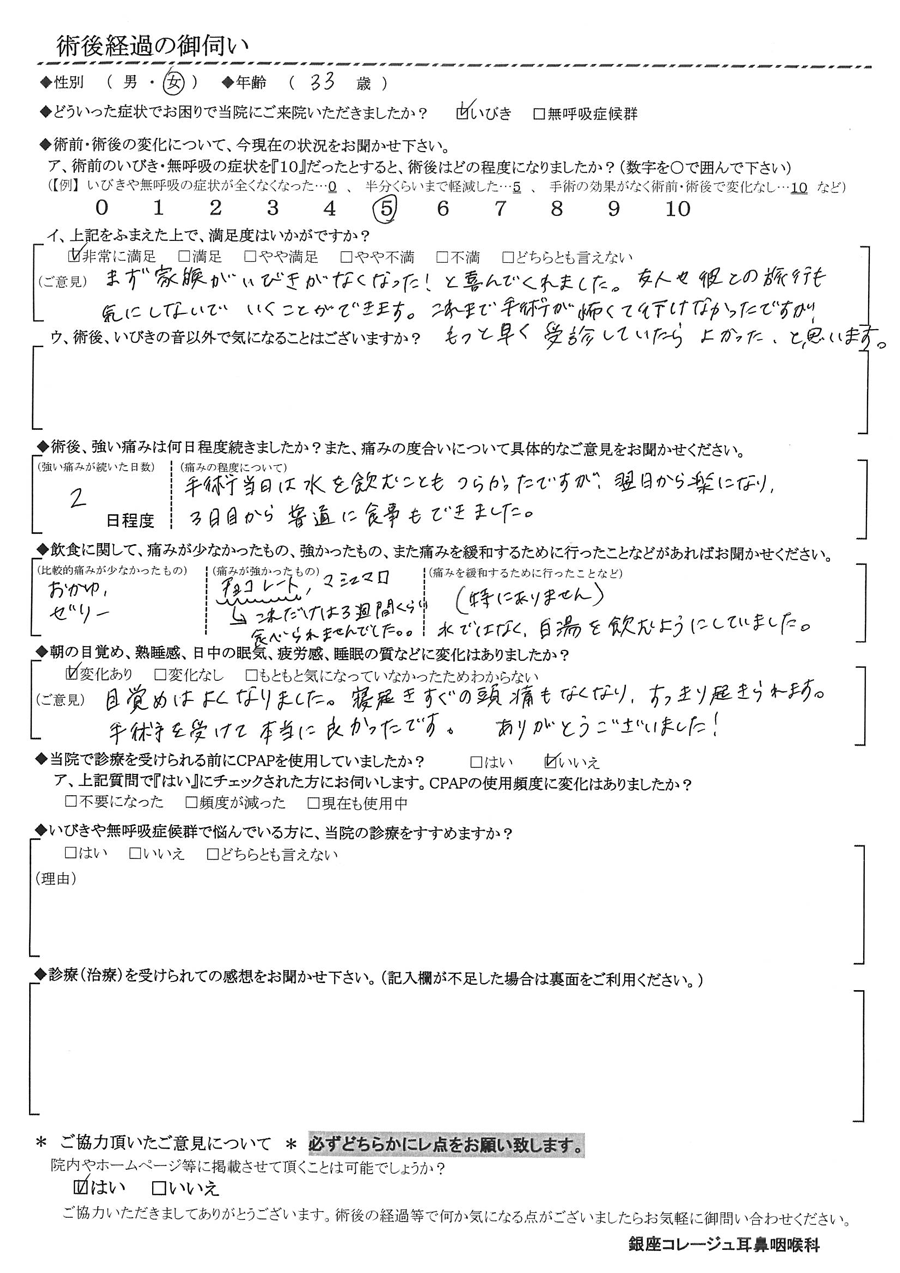 術後経過の御伺い
◆性別 ( 男 ・ 女 ) ◆年齢 ( 33 歳 )
◆どういった症状でお困りで当院にご来院いただきましたか? ☑いびき □無呼吸症候群
◆術前・術後の変化について、今現在の状況をお聞かせ下さい。
ア、術前のいびき・無呼吸の症状を『10』だったとすると、術後はどの程度になりましたか?(数字を○で囲んで下さい)
(【例】 いびきや無呼吸の症状が全くなくなった…0 、 半分くらいまで軽減した…5 、 手術の効果がなく術前・術後で変化なし…10 など)
0 1 2 3 4 5 6 7 8 9 10
イ、上記をふまえた上で、満足度はいかがですか?
☑非常に満足 □満足 □やや満足 □やや不満 □不満 □どちらとも言えない
(ご意見) まず家族がいびきがなくなった!と喜んでくれました。友人や彼との旅行も
気にしないで いくことができます。これまで手術が怖くて行けなかったですが
ウ、術後、いびきの音以外で気になることはございますか? もっと早く受診していたら よかった、と思います。
◆術後、強い痛みは何日程度続きましたか?また、痛みの度合いについて具体的なご意見をお聞かせください。
(強い痛みが続いた日数) (痛みの程度について)
手術当日は水を飲むことも つらかったですが、翌日から楽になり、
2 日程度 3日目から普通に食事もできました。
◆飲食に関して、痛みが少なかったもの、強かったもの、また痛みを緩和するために行ったことなどがあればお聞かせください。
(比較的痛みが少なかったもの) (痛みが強かったもの) (痛みを緩和するために行ったことなど)
おかゆ、 チョコレート、マシュマロ (特にありません)
ゼリー ↳これだけは3週間くらい
食べられませんでした。。 水ではなく、白湯を飲むようにしていました。
◆朝の目覚め、熟睡感、日中の眠気、疲労感、睡眠の質などに変化はありましたか?
☑変化あり □変化なし □もともと気になっていなかったためわからない
(ご意見) 目覚めはよくなりました。寝起きすぐの頭痛もなくなり、すっきり起きられます。
手術を受けて本当に良かったです。 ありがとうございました!
◆当院で診療を受けられる前にCPAPを使用していましたか? □はい ☑いいえ
ア、上記質問で『はい』にチェックされた方にお伺いします。CPAPの使用頻度に変化はありましたか?
□不要になった □頻度が減った □現在も使用中
◆いびきや無呼吸症候群で悩んでいる方に、当院の診療をすすめますか?
□はい □いいえ □どちらとも言えない
(理由)
◆診療(治療)を受けられての感想をお聞かせ下さい。(記入欄が不足した場合は裏面をご利用ください。)
* ご協力頂いたご意見について * 必ずどちらかにレ点をお願い致します。
院内やホームページ等に掲載させて頂くことは可能でしょうか?
☑はい □いいえ
ご協力いただきましてありがとうございます。術後の経過等で何か気になる点がございましたらお気軽に御問い合わせください。
銀座コレージュ耳鼻咽喉科